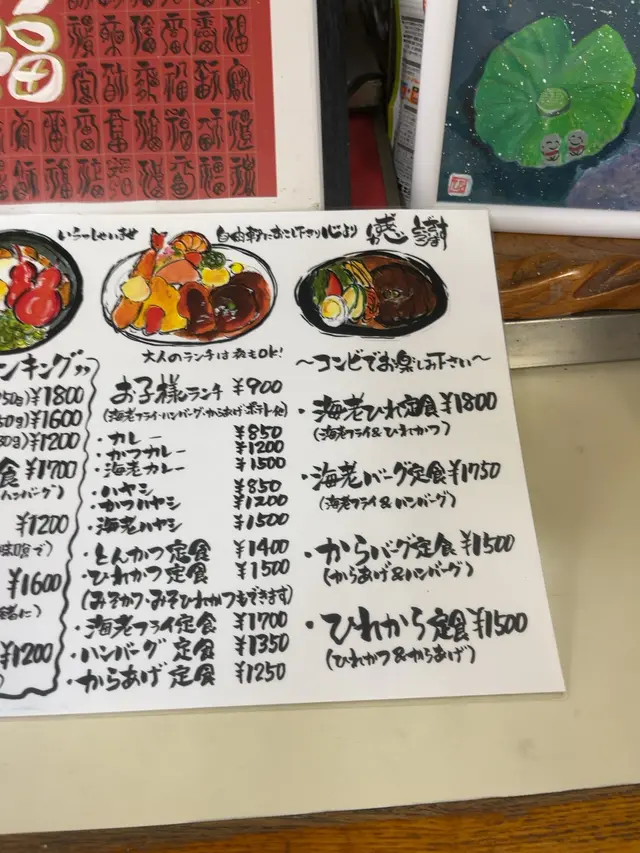 福
いらっしゃいませ
自由軒におこし下さり心より 感謝
ンキング
50g)¥1800
50g)¥1600
30g)¥1200
食 ¥1700
ハンバーグ)
¥1200
¥1600
¥1200
大人のランチは夜もOK!
お子様ランチ ¥900
(海老フライ・ハンバーグ・からあげ・ポテト他)
・カレー ¥850
・かつカレー ¥1200
・海老カレー ¥1500
・ハヤシ ¥850
・かつハヤシ ¥1200
・海老ハヤシ ¥1500
・とんかつ定食 ¥1400
・ひれかつ定食 ¥1500
(みそかつ・みそひれかつもできます)
・海老フライ定食 ¥1700
・ハンバーグ定食 ¥1350
・からあげ定食 ¥1250
〜コンビでお楽しみ下さい〜
・海老ひれ定食 ¥1800
(海老フライ&ひれかつ)
・海老バーグ定食 ¥1750
(海老フライ&ハンバーグ)
・からバーグ定食 ¥1500
(からあげ&ハンバーグ)
・ひれから定食 ¥1500
(ひれかつ&からあげ)